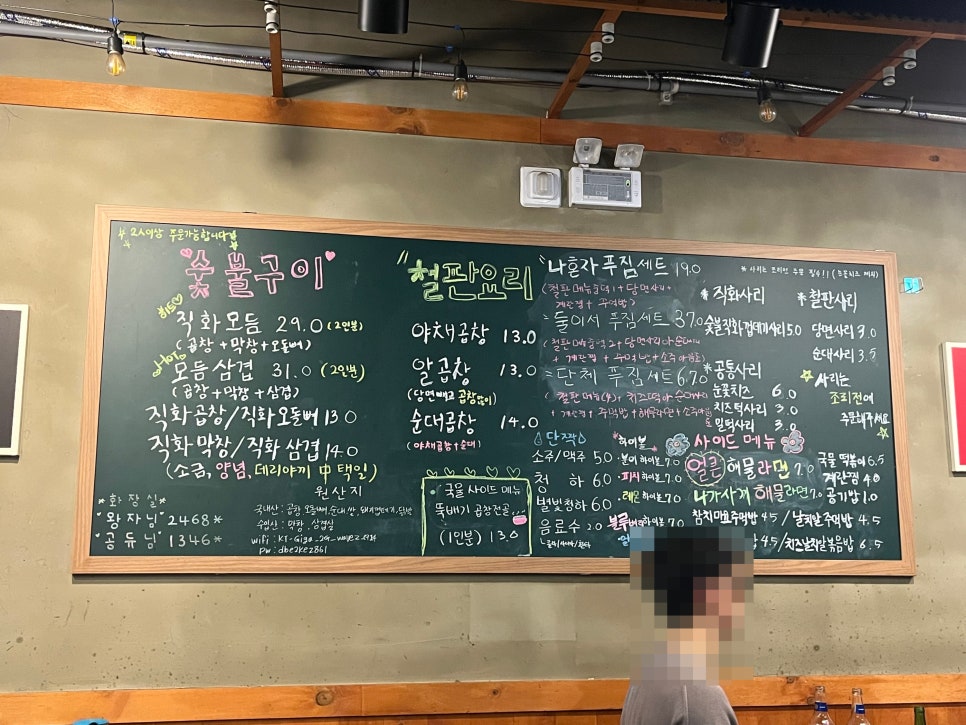 2人이상 주문가능합니다
숯불구이
직화모듬 29.0 (2인분)
(곱창+막창+오돌뼈)
모듬삼겹 31.0 (2인분)
(곱창+막창+삼겹)
직화곱창/직화오돌뼈 13.0
직화막창/직화삼겹 14.0
(소금, 양념, 데리야끼 中 택일)
*화장실*
"왕자님" 2468*
"공듀님" 1346*
원산지
국내산:
수입산: 막창, 삼겹살
wifi: KT-Giga_2G_
pw: dbe2kez861
"철판요리
야채곱창 13.0
알곱창 13.0
(당면빼고 곱창많이)
순대곱창 14.0
(야채곱창+순대)
국물 사이드 메뉴
뚝배기 곱창전골...
(1인분) 13.0
나혼자 푸짐세트 19.0
(철판메뉴 택1+당면사리+
계란찜+주먹밥)
둘이서 푸짐세트 37.0
(철판메뉴 택2+당면사리
+계란찜+주먹밥+소주
단체 푸짐세트 67.0
(철판메뉴(4), 치즈떡
+계란찜+주먹밥+해물라면+소주
단짝
소주/맥주 5.0
청하 6.0
별빛청하 6.0
음료수 2.0
하이볼
하이볼 7.0
피치하이볼 7.0
레몬하이볼 7.0
블루 하이볼 7.0
*사리는 조리전 주문 필수!!
*직화사리
숯불직화껍데기사리 5.0
*공통사리
눈꽃치즈 6.0
치즈떡사리 3.0
밀떡사리 3.0
*철판사리
당면사리 3.0
순대사리 3.5
사리는
조리전에
주문해주세요
사이드 메뉴
얼큰해물라면 7.0
나가사끼 해물라면 7.0
참치마요주먹밥 4.5 / 날치알주먹밥 4.5
4.5/치즈날치알볶음밥 6.5
국물떡볶이 6.5
계란찜 4.0
공기밥 1.0